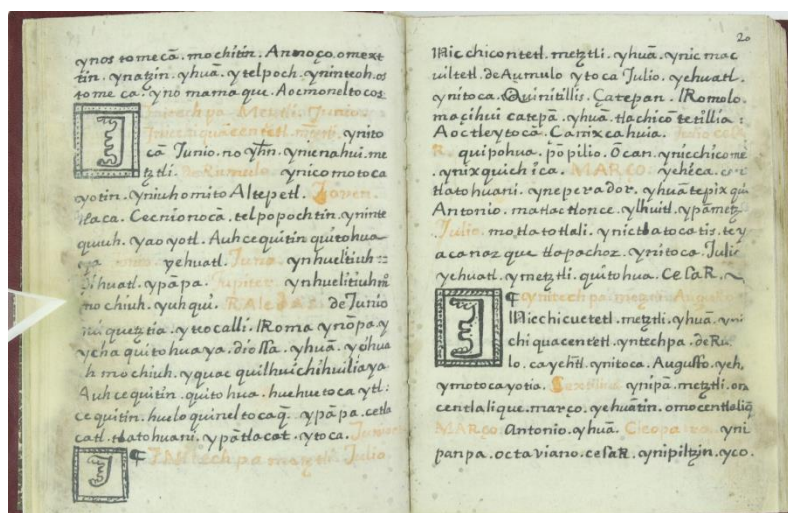 ynos tomecā. mochitin. Annoço. omext
tin. ynatzin. yhuā. ytelpoch. yninteoh. os
tome ca. ynomamaque. Aocmoneltocos
Initechpa Metztli. Junio.
Inic chiquacentetl. metztli. ynito
cā Junio. no yhn. ynicnahui. me
tztli. de Rumulo ynicomotoca
yotin. yniuhomito Altepetl. Joven.
tlaca. Cecnionocā. telpopochtin. yninte
quiuh. yaoyotl. Auhcequitin quitohua
ya yehuatl. Juno. ynhuelitiuh
Cihuatl. ypāpa. Jupiter. ynhuelitiuh
mochiuh. yuhqui. RAledas de Junio
quiquetztia. yteocalli. IRoma ynōpa. y
ycha quitohuaya. diossa. yhuā. yohua
h mochiuh. yquac quilhuichihuiliaya
Auh cequitin. quitohua. huehuetoca ytl:
cequitin. huelo quineltocaq̄. ypāpa. cetla
catl. tlatohuani. ypātlacat. ytoca. Junio
INItechpa metztli. Julio
20
INic chicontetl. metztli. yhuā. ynic mac
uiltetl. de Aumulo ytoca Julio. yehuatl.
ynitoca. Quinitillis. Çatepan. IRomolo.
maçihui catepā. yhuā. tlachicō tetillia:
Aoctleytocā. Canixcahuia. Julio cesa
R. quipohua. pōpilio. Ōcan. ynicchicome
ynixquichica. MARÇO. yehica.
tlatohuani. yneperador. yhuā tepixqui
Antonio. matlactlonce. ylhuitl. ypāmetz
Julio. motlatotlali. ynictlatocatis. tey
acanaz que tlapachoz. ynitoca. Julio
yehuatl. ymetztli. quitohua. CesaR.
ynitechpa metztli Augusto
INicchicuetetl. metztli. yhuā. yni
chiquacentetl. yntechpa. de Ru
lo. cayehtl. ynitoca. Augusto. yeh,
ymotocayotia. Sextilius ynipā. metztli. on
centlalique. março. yehuātin. omocentlaliq̄
MARÇO. Antonio. yhuā. Cleopatra. yni
panpa. octaviano. cesaR. ynipiltzin. yco.